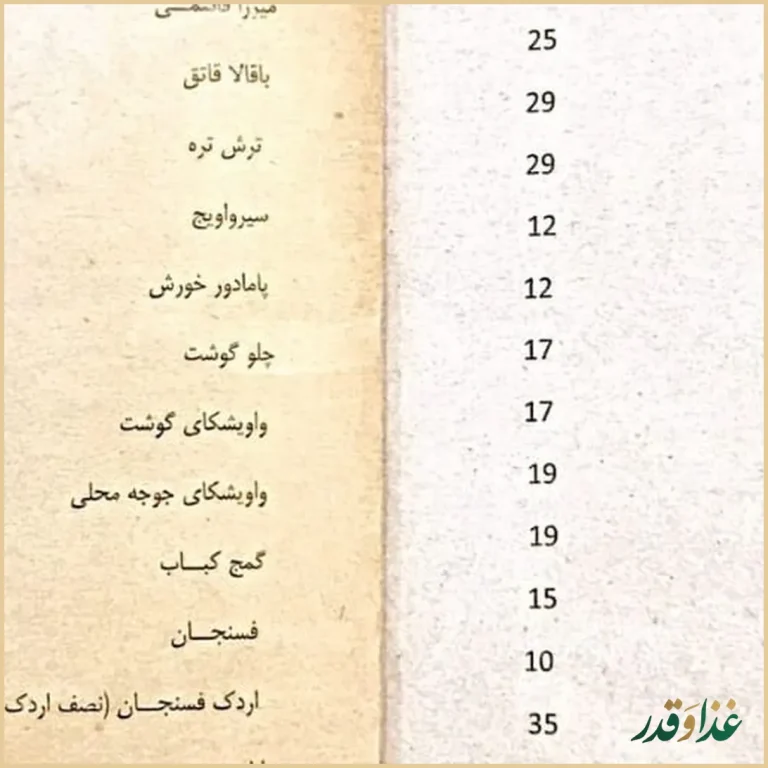 میرزا قاسمــی
باقالا قاتق
ترش تره
سیرواویج
پامادور خورش
چلو گوشت
واویشکای گوشت
واویشکای جوجه محلی
گمج کبــاب
فسنجــان
اردک فسنجــان (نصف اردک
25
29
29
12
12
17
17
19
19
15
10
35
غذا و قدر